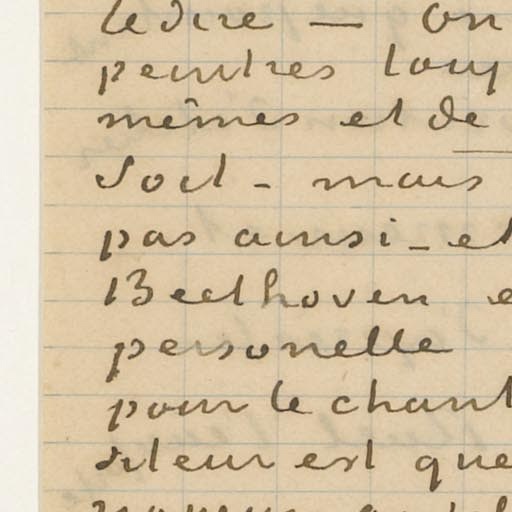 le dire — on
peintres touj
mêmes et de
soit - mais
pas ainsi - et
Beethoven e
personelle
pour le chant
siteur est que